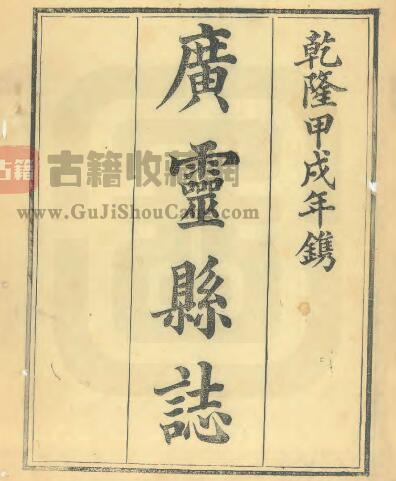 乾隆甲戌年鐫
廣靈縣誌
古籍
古籍收藏網
www.GuJiShouCang.com